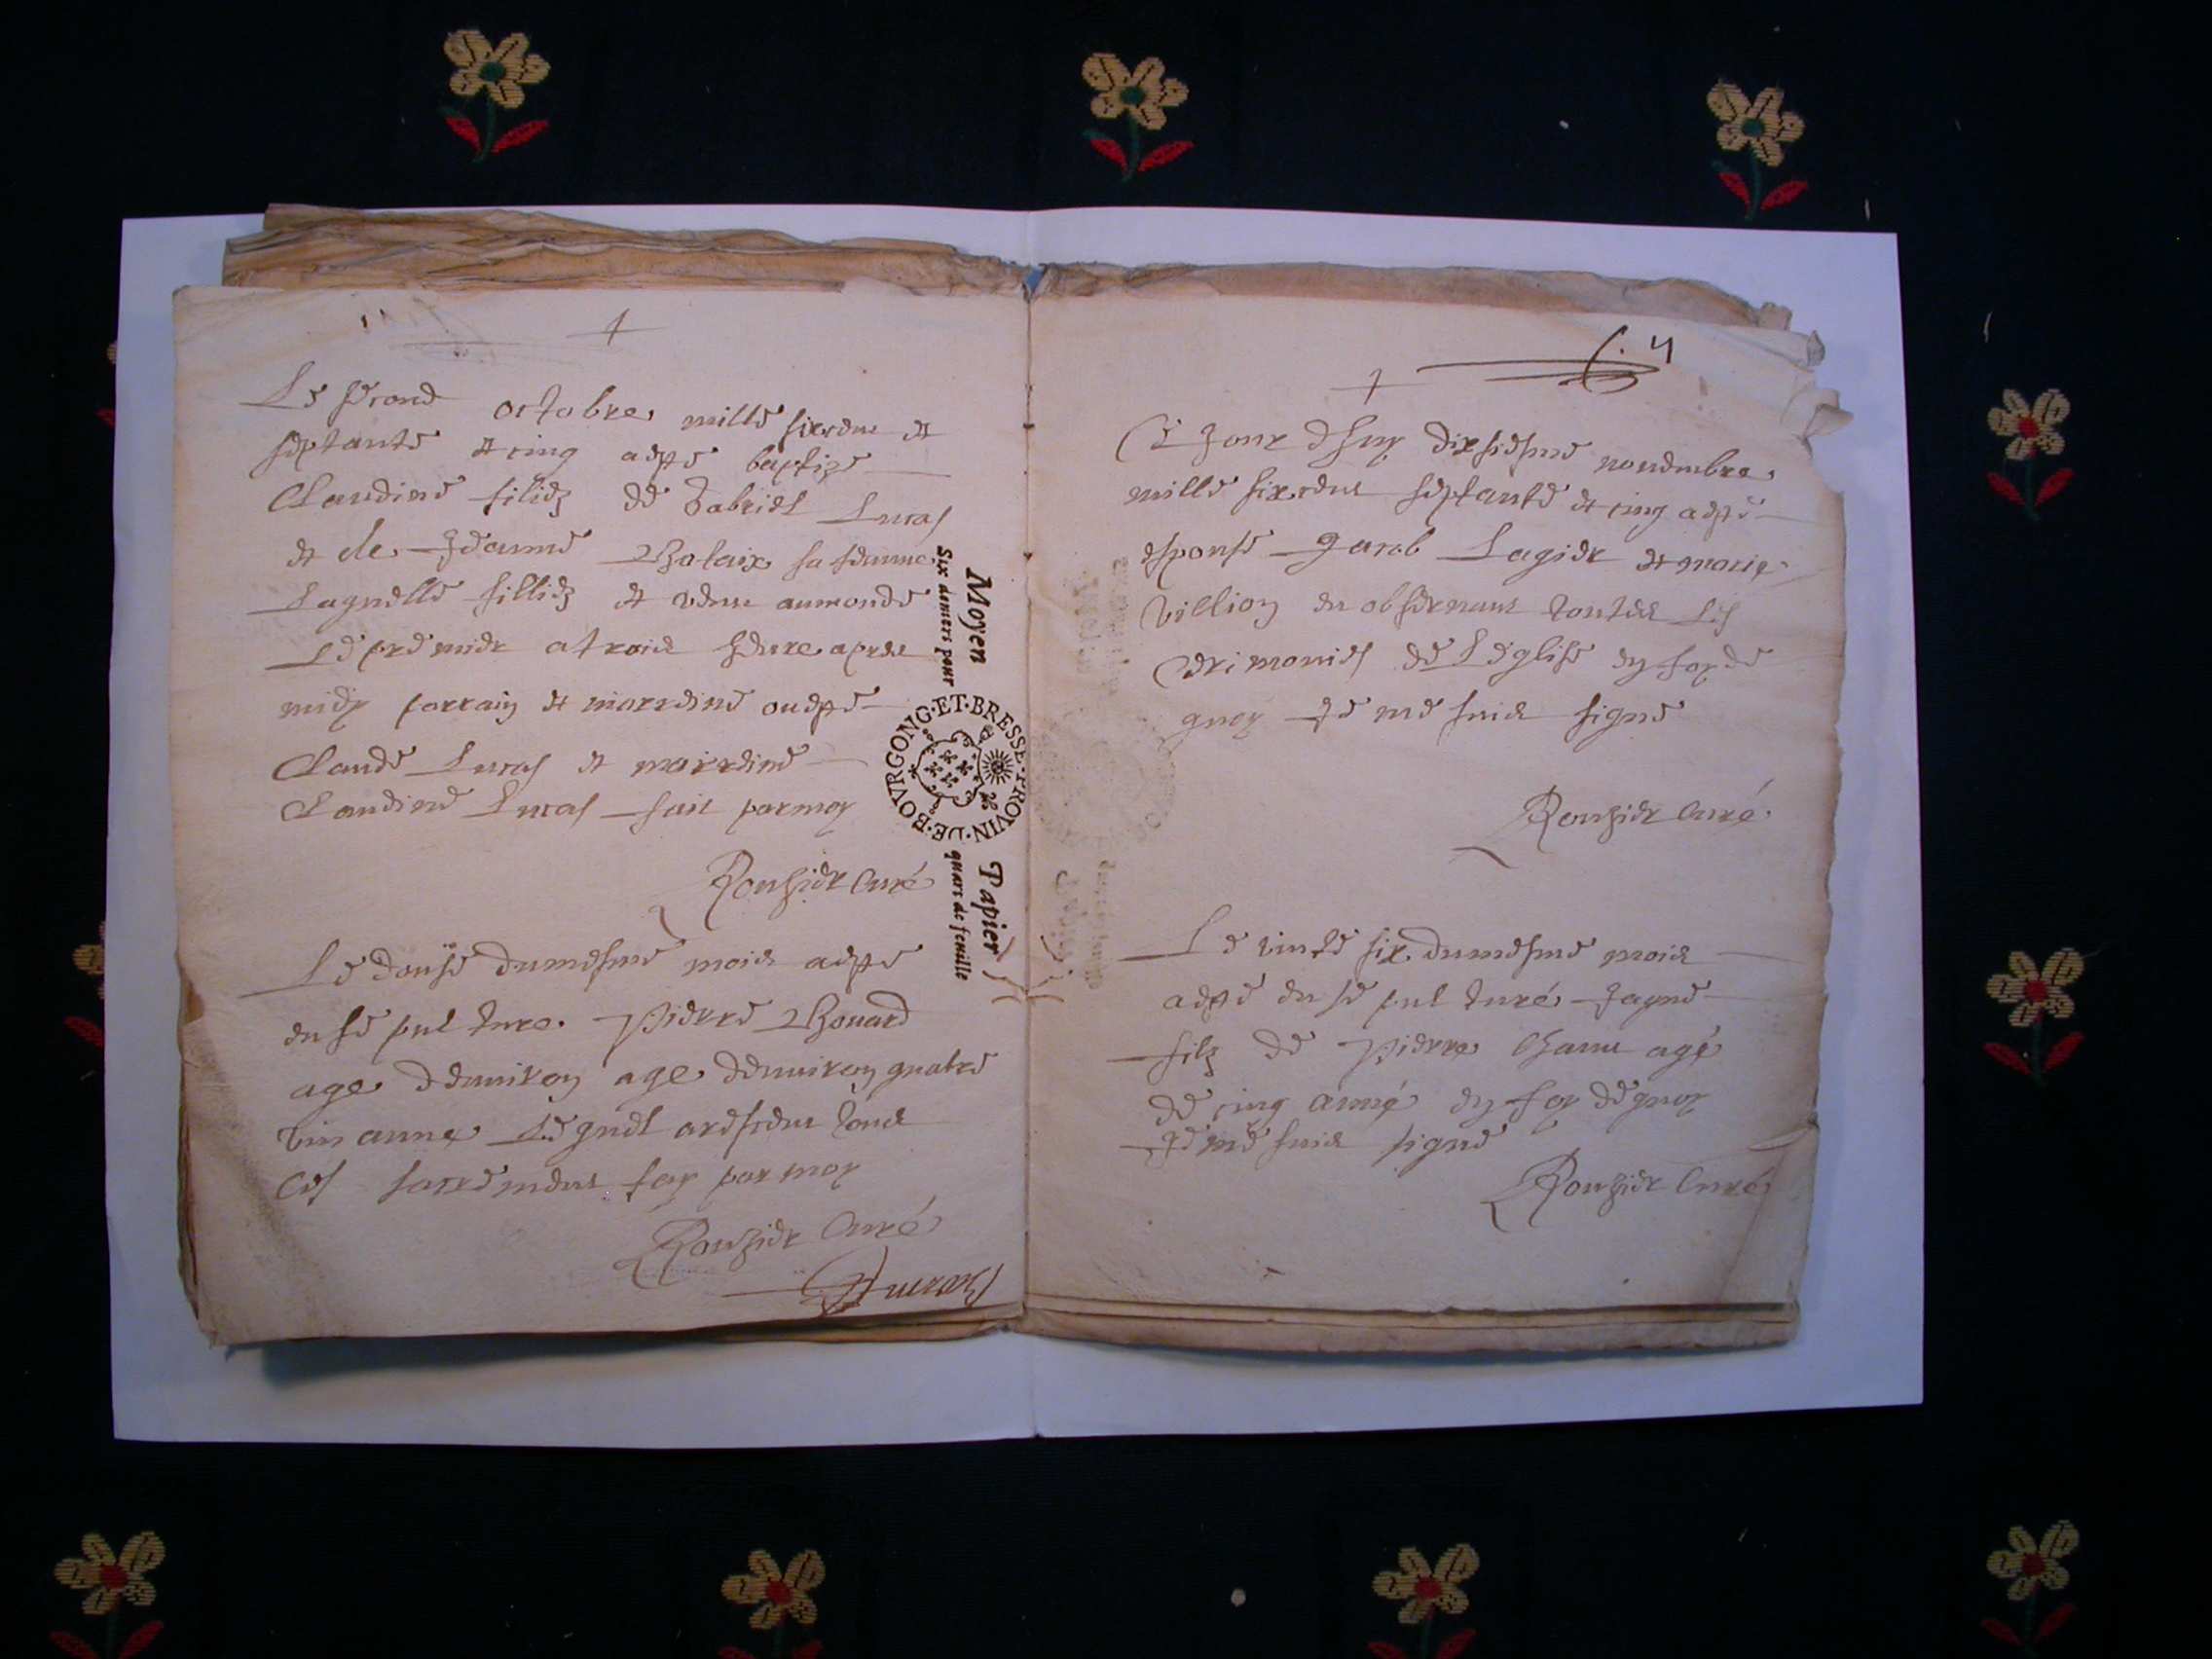 Le second octobre mille sixcent et
septante et cinq aesté baptizé
Claudine fillie de Gabriel Lucas
et de Jeanne Chalaix sa femme
Laquelle fillie et venu aumonde
Le premier a trois heure apres
midy parrain et marreine ouesté
Claude Lucas et marreine
Claudine Lucas fait parmoy
Rouhier Curé
Le douse dumesme mois aesté
en se pul ture. Pierre Chouard
age denviron age denviron quatre
vin anné Lequel areseu tous
Ces sacrement fay par moy
Rouhier Curé
Moyen Papier
Six deniers pour quart de feuille
PROVIN·DE·BOVRGONG·ET·BRESSE
4
Ce jour dhuy dixsiesme novembre
mille sixcent septante et cinq aesté
espousé Jacob Lagier et marie
villion en observant toutes Les
Cerimonies de Léglise en foy de
quoy Je me suis signé
Rouhier Curé
Le vinte six dumesme mois
aesté en se pul turé
filz de Pierre age
de cinq anné en foy de quoy
Je me suis signé
Rouhier Curé